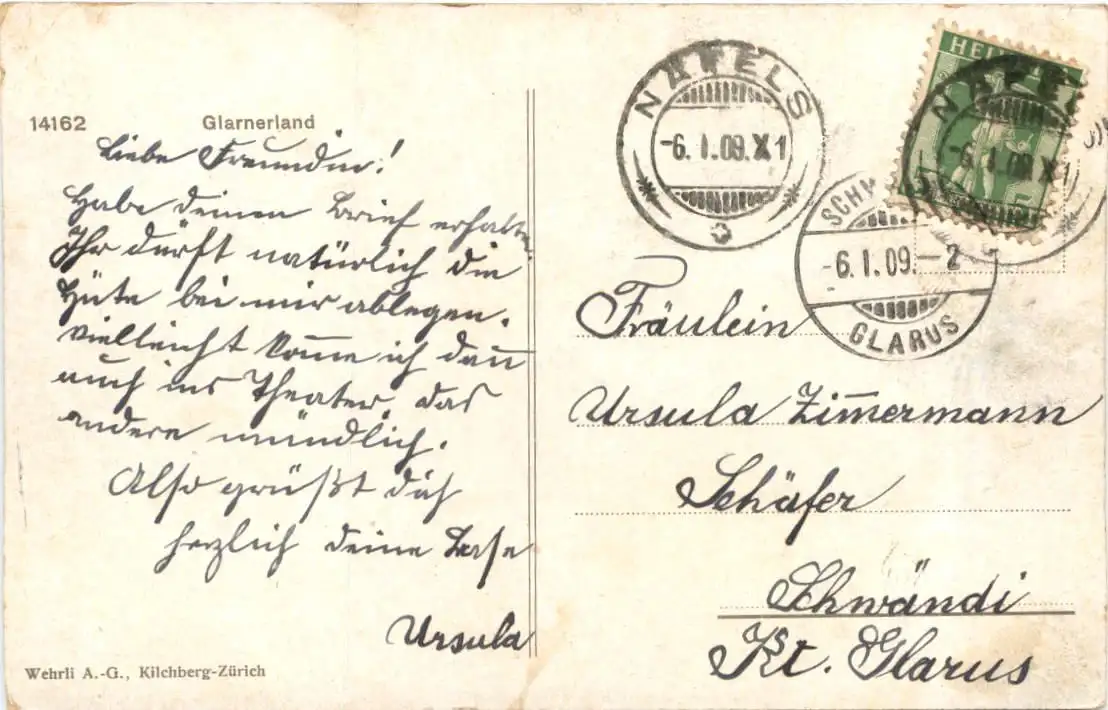 14162 Glarnerland
Liebe Freundin!
Habe deinen Brief erhalten.
Ihr dürft natürlich die
Hüte bei mir ablegen.
Vielleicht kom̅e ich dan̅
auch ins Theater, das
andere mündlich.
Also grüßt dich
herzlich deine Base
Ursula
Wehrli A.-G., Kilchberg-Zürich
NÄFELS
-6.I.09.XI
HELV
NÄFELS
-6.I.09.XI
-6.I.09.-2
GLARUS
Fräulein
Ursula Zim̅ermann
Schäfer
Schwändi
Kt. Glarus